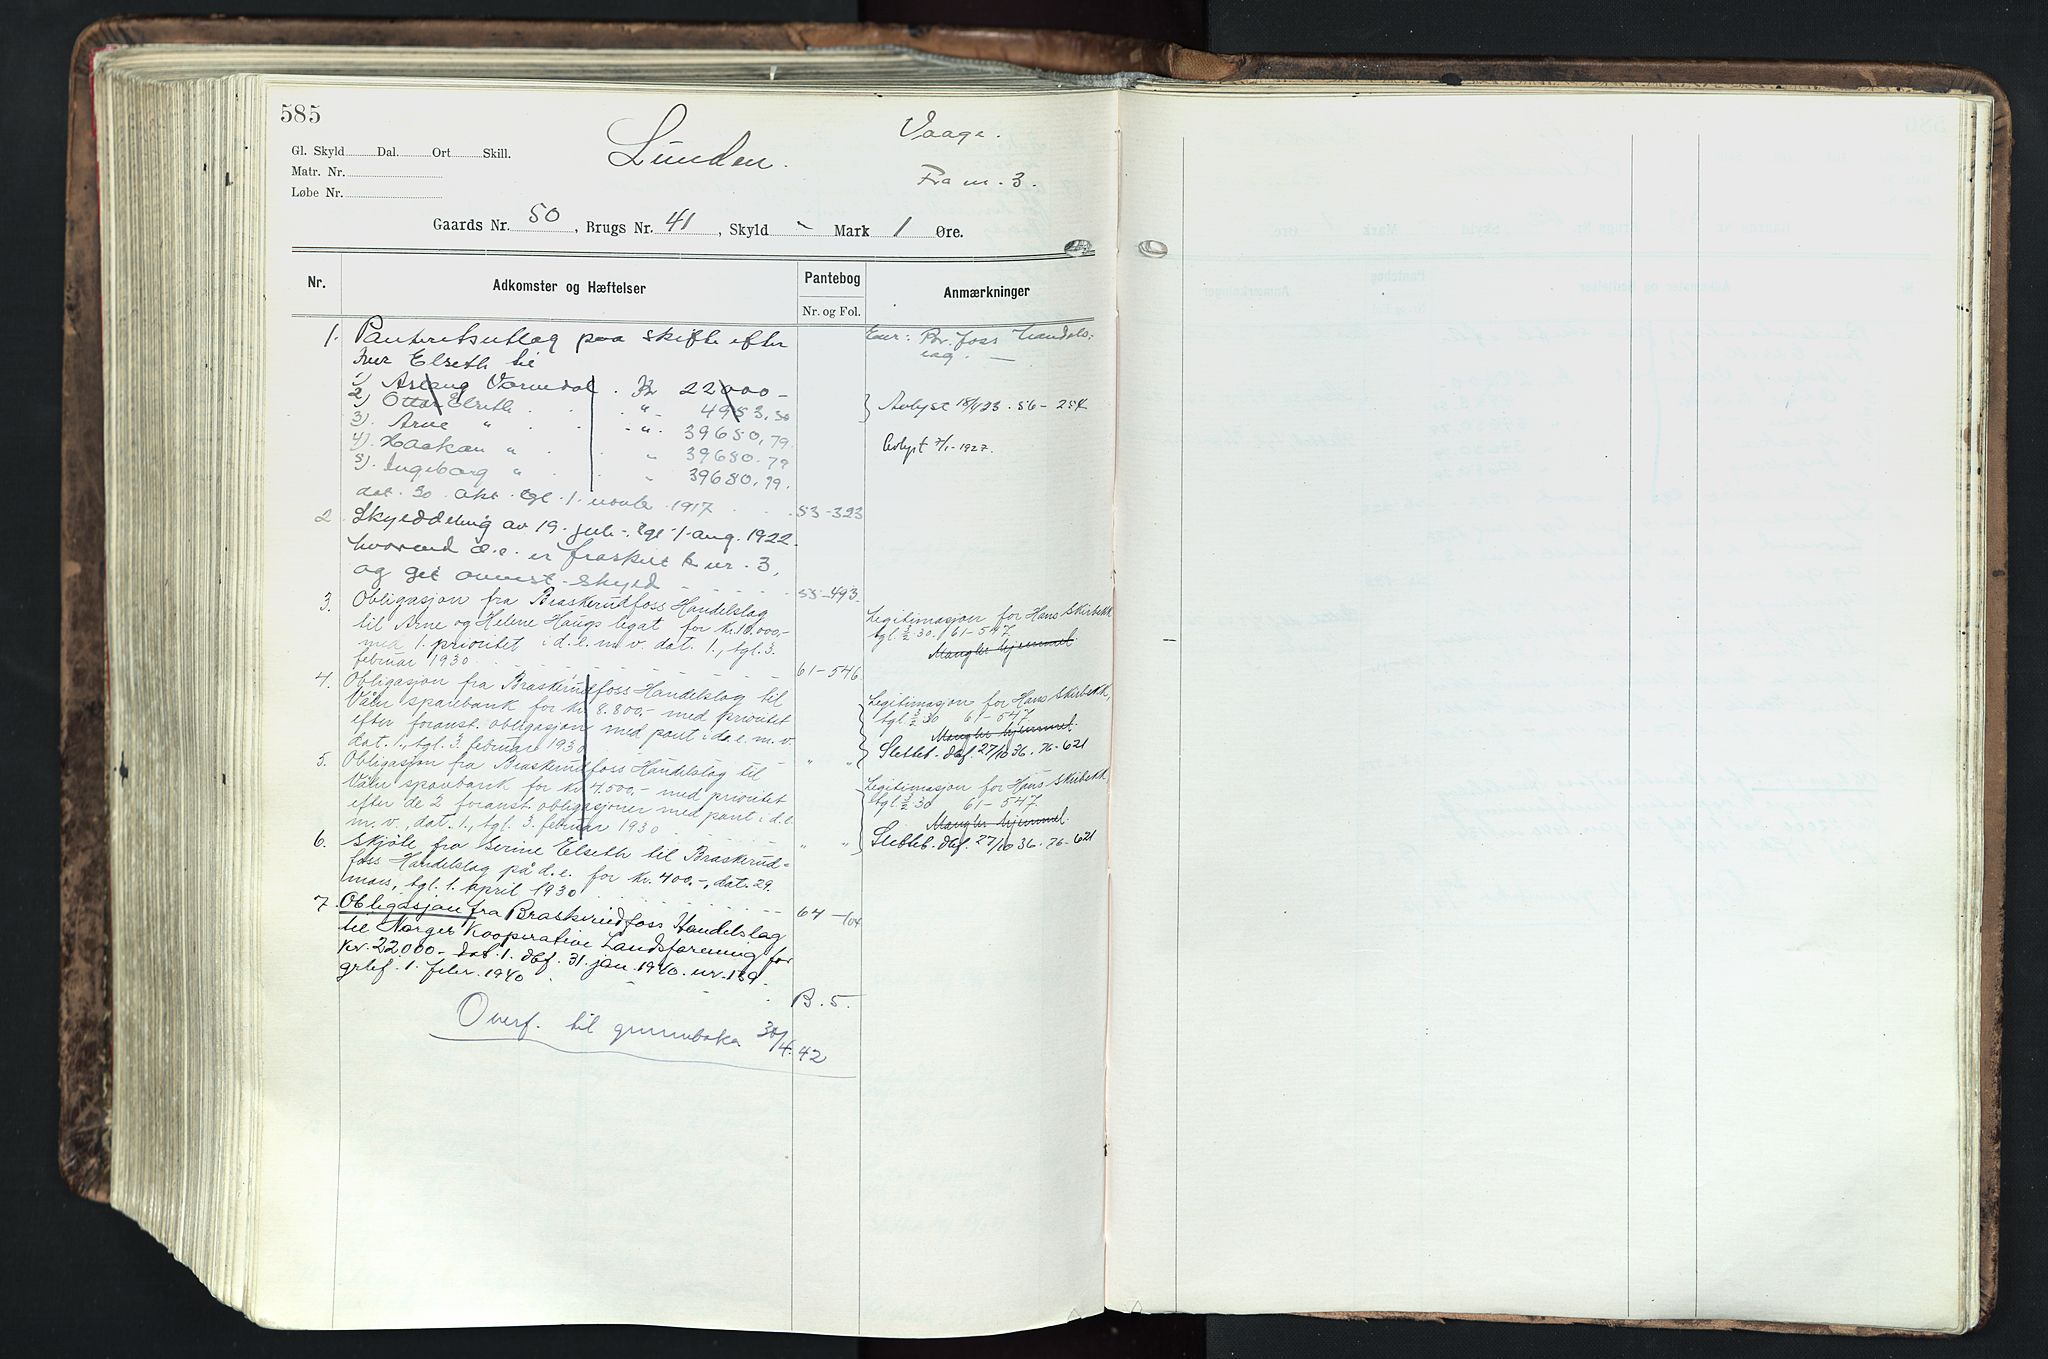 585
Lunden.
Vaage.
Fra nr. 3.
Gl. Skyld Dal. Ort Skill.
Matr. Nr.
Løbe Nr.
Gaards Nr. 50, Brugs Nr. 41, Skyld - Mark 1 Øre.
Nr. Adkomster og Hæftelser Pantebog Anmærkninger
Nr. og Fol.
1. Panteretsutlæg paa skifte efter
Iver Elseth til
1) Aslaug Kr 22000 -
2) Ottar Elseth " 4953,50
3). Arne " " 39680,79
4). Haakon " " 39680.79
5). Ingeborg " " 39680,79.
dat. 30 okt. tgl. 1. novbr. 1917 53-323
Eier: Br. foss Handels-
lag.
Avlyst 18/4 23. 56-254
Avlyst 7/1-1927.
2. Skylddeling av 19. juli, tgl 1 aug. 1922
hvorved d.e. er fraskilt br nr. 3,
og git anvist skyld 55-493
3. Obligasjon fra Braskerudfoss Handelslag
til Arne og Helene Haugs legat for kr. 10.000,-
med 1. prioritet i d.e. m.v. dat. 1., tgl. 3.
februar 1930 61-546
Legitimasjon for Hans Skirbekk
tgl 3/2 30. 61-547
Mangler hjemmel.
4. Obligasjon fra Braskerudfoss Handelslag til
Våler sparebank for kr 8.800,- med prioritet
efter foranst. obligasjon med pant i d.e. m.v.
dat. 1., tgl. 3. februar 1930 " "
Legitimasjon for Hans Skirbekk,
tgl 3/2 30 61-547
Mangler hjemmel.
Slettet. dbf. 27/10 36. 76-621
5. Obligasjon fra Braskerudfoss Handelslag til
Våler sparebank for kr 4.500,- med prioritet
efter de 2 foranst. obligasjoner med pant i d.e.
m.v., dat. 1., tgl. 3. februar 1930 " "
Legitimasjon for Hans Skirbekk,
tgl 3/2 30 61-547
Mangler hjemmel.
Slettet. dbf. 27/10 36. 76-621
6. Skjøte fra Serine Elseth til Braskerud-
foss Handelslag på d.e. for kr. 400,-, dat. 29.
mars, tgl. 1. april 1930 64-104
7. Obligasjon fra Braskerudfoss Handelslag
til Norges Kooperative Landsforening for
kr. 22000.- dat. 1. dbf. 31. jan. 1940. nr. 139.
grbf. 1. febr. 1940 B. 5.
Overf. til grunnboka 30/4.42